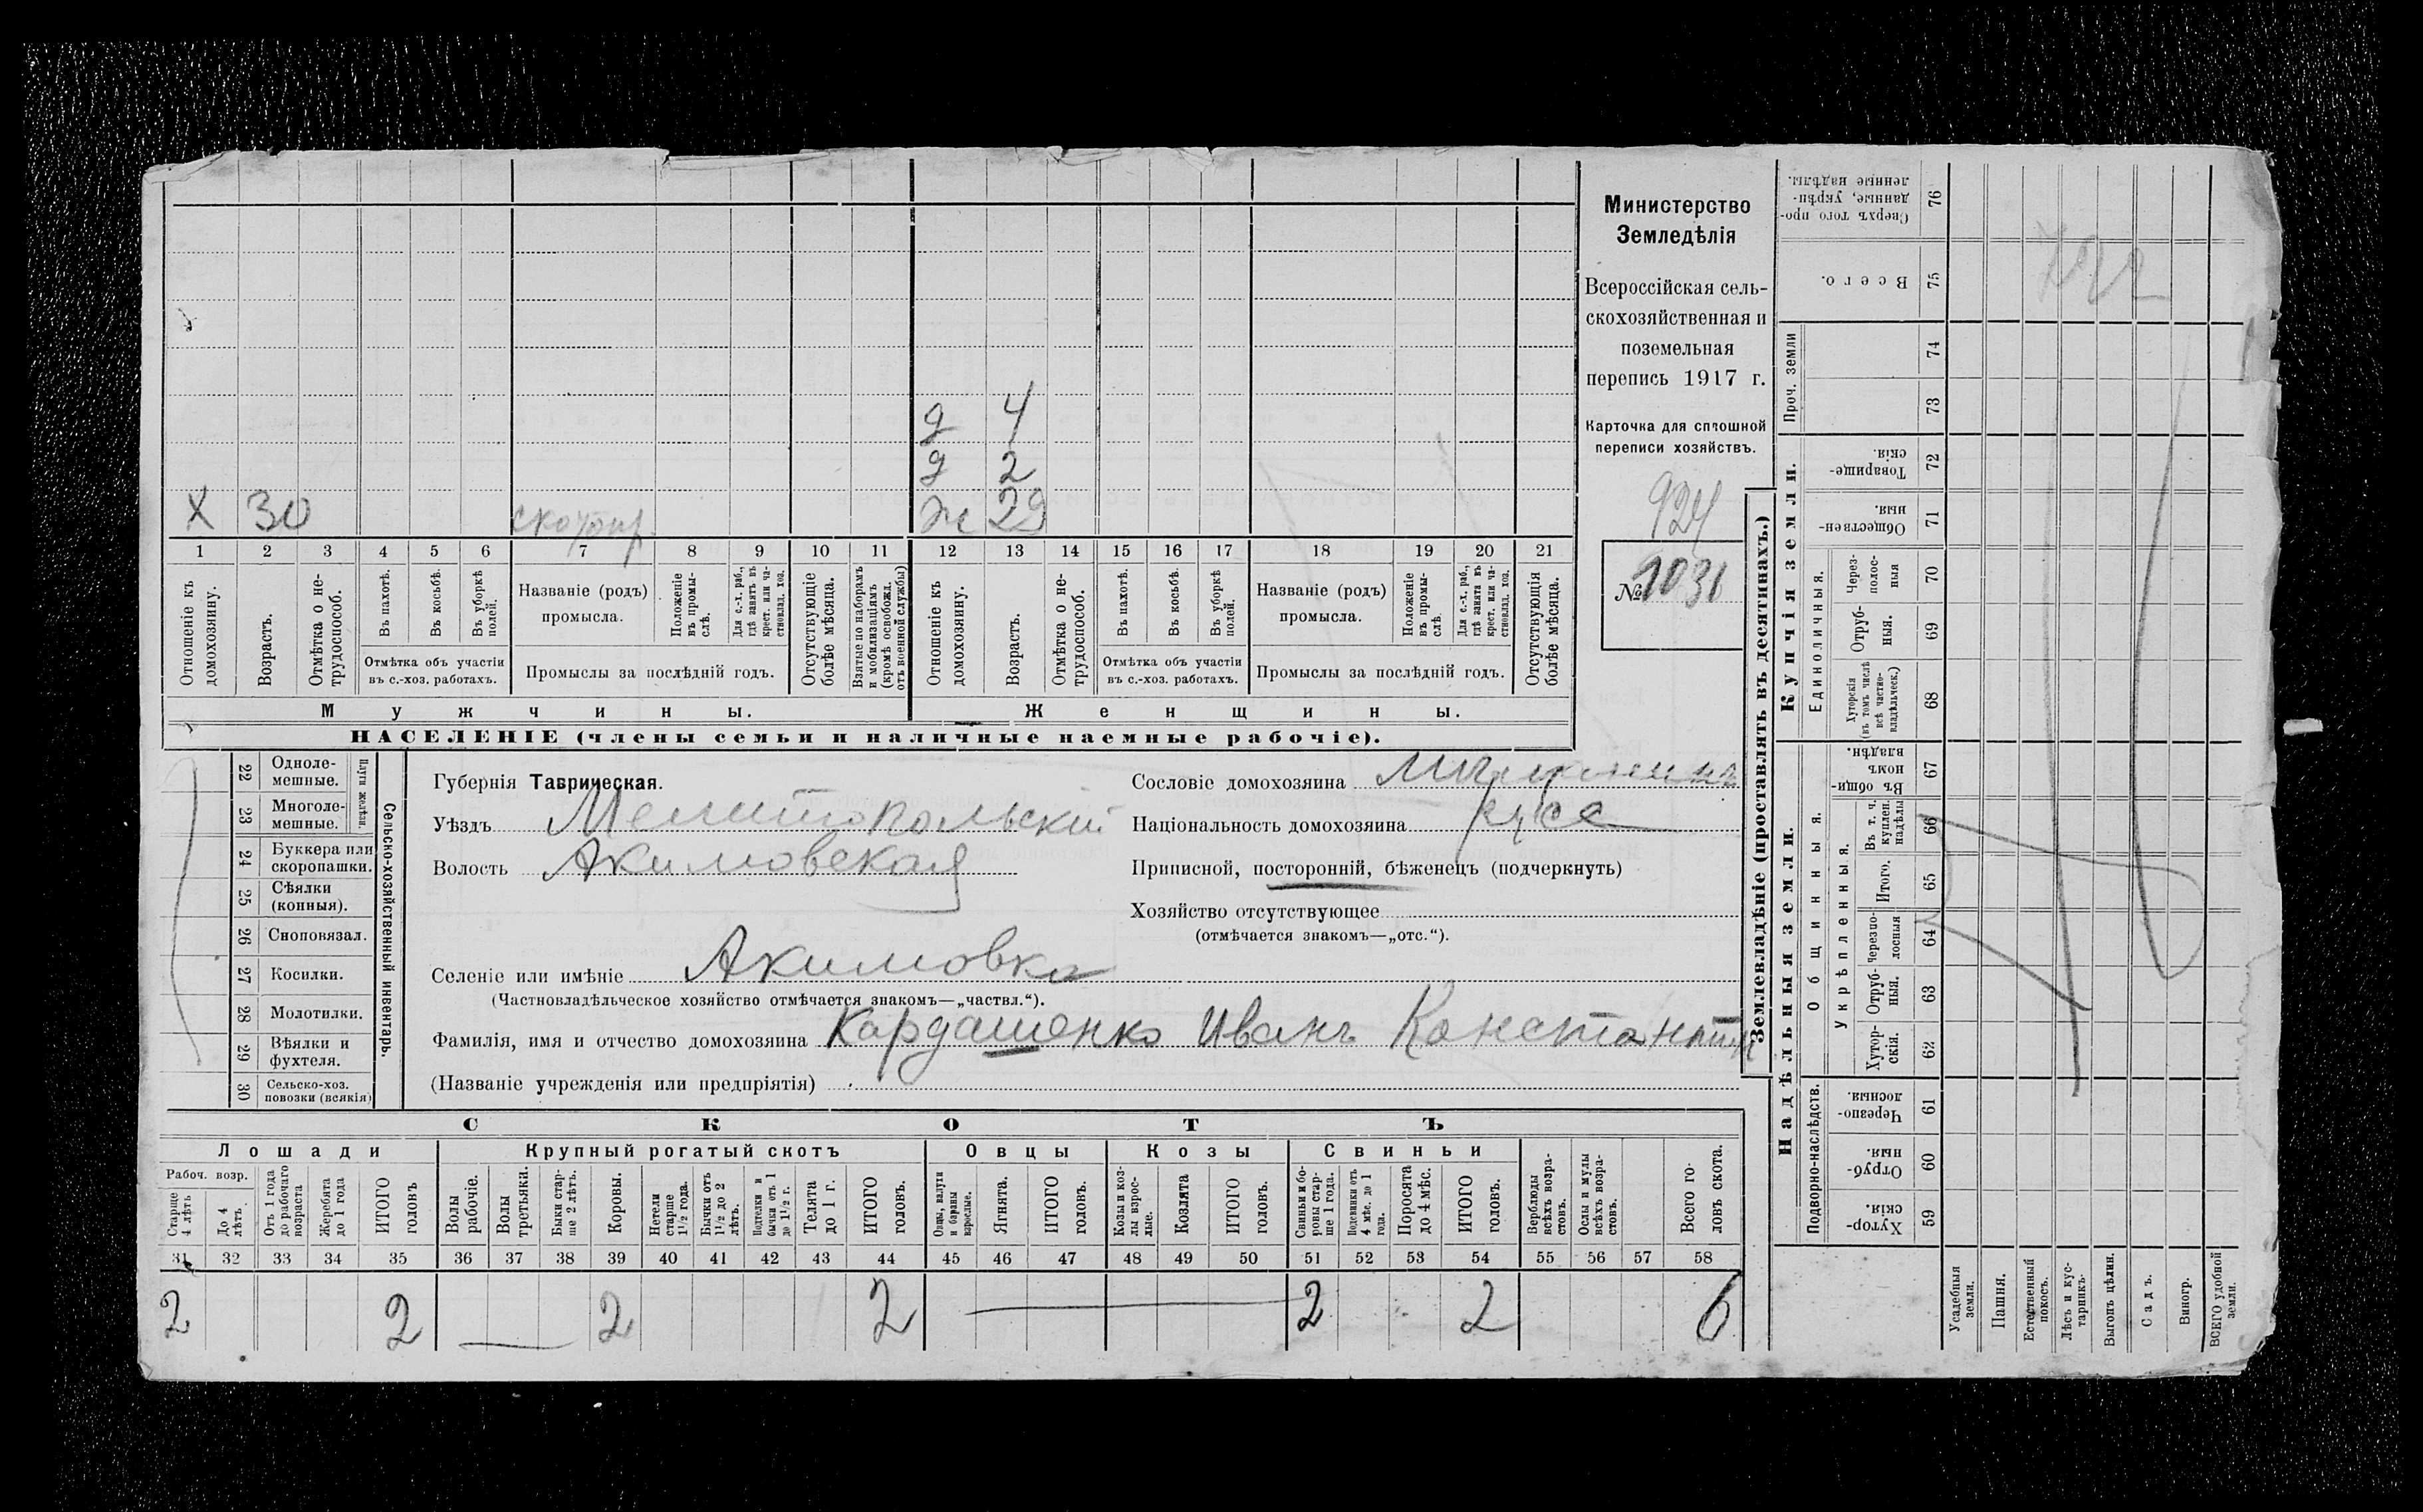 Министерство
Земледѣлія
Всероссійская сель-
скохозяйственная и
поземельная
перепись 1917 г.
Карточка для сплошной
переписи хозяйствъ.
924
№ 1031
д 4
д 2
Х 30 скотопр. ж 29
1 2 3 4 5 6 7 8 9 10 11 12 13 14 15 16 17 18 19 20 21
Отношеніе къ домохозяину.
Возрастъ.
Отмѣтка о не-трудоспособ.
Въ пахотѣ.
Въ косьбѣ.
Въ уборкѣ полей.
Отмѣтка объ участіи
въ с.-хоз. работахъ.
Названіе (родъ)
промысла.
Положеніе въ промы-слѣ.
Для с.-х. раб., гдѣ занятъ въ крест. или ча-стновлад. хоз.
Промыслы за послѣдній годъ.
Отсутствующіе болѣе мѣсяца.
Взятые по наборамъ и мобилизаціямъ (кромѣ освобожд. отъ военной службы)
Отношеніе къ домохозяину.
Возрастъ.
Отмѣтка о не-трудоспособ.
Въ пахотѣ.
Въ косьбѣ.
Въ уборкѣ полей.
Отмѣтка объ участіи
въ с.-хоз. работахъ.
Названіе (родъ)
промысла.
Положеніе въ промы-слѣ.
Для с.-х. раб., гдѣ занята въ крест. или ча-стновлад. хоз.
Промыслы за послѣдній годъ.
Отсутствующія болѣе мѣсяца.
Мужчины. Женщины.
НАСЕЛЕНІЕ (члены семьи и наличные наемные рабочіе).
22 Одноле-мешные.
23 Многоле-мешные.
Плуги желѣзн.
24 Буккера или скоропашки.
25 Сѣялки (конныя).
26 Сноповязал.
27 Косилки.
28 Молотилки.
29 Вѣялки и фухтеля.
30 Сельско-хоз. повозки (всякія)
Сельско-хозяйственный инвентарь.
Губернія Таврическая.
Уѣздъ Мелитопольскій
Волость Акимовская
Селеніе или имѣніе Акимовка
(Частновладѣльческое хозяйство отмѣчается знакомъ—„частвл.“).
Фамилія, имя и отчество домохозяина Кардашенко Иванъ Константин
(Названіе учрежденія или предпріятія)
Сословіе домохозяина
Національность домохозяина русс
Приписной, посторонній, бѣженецъ (подчеркнуть)
Хозяйство отсутствующее
(отмѣчается знакомъ—„отс.“).
СКОТЪ
Лошади Крупный рогатый скотъ Овцы Козы Свиньи
Рабоч. возр.
Старше 4 лѣтъ
До 4 лѣтъ.
Отъ 1 года до рабочаго возраста
Жеребята до 1 года
ИТОГО головъ
Волы рабочіе.
Волы третьяки.
Быки стар-ше 2 лѣтъ.
Коровы.
Нетели старше 1½ года.
Бычки отъ 1½ до 2 лѣтъ.
Подтелки и бычки отъ 1 до 1½ г.
Телята до 1 г.
ИТОГО головъ.
Овцы, валухи и бараны взрослые.
Ягнята.
ИТОГО головъ.
Козы и коз-лы взрос-лые.
Козлята
ИТОГО головъ.
Свиньи и бо-ровы стар-ше 1 года.
Подсвинки отъ 4 мѣс. до 1 года.
Поросята до 4 мѣс.
ИТОГО головъ.
Верблюды всѣхъ возра-стовъ.
Ослы и мулы всѣхъ возра-стовъ.
Всего го-ловъ скота.
31 32 33 34 35 36 37 38 39 40 41 42 43 44 45 46 47 48 49 50 51 52 53 54 55 56 57 58
2 2 2 2 2 2 6
Землевладѣніе (проставлять въ десятинахъ.)
Надѣльныя земли. Купчія земли.
Подворно-наслѣдств.
Общинныя.
Укрѣпленныя.
Единоличныя.
Проч. земли
Сверхъ того про-данные, укрѣп-ленные надѣлы. 76
Всего. 75
74
73
Товарище-скія. 72
Обществен-ныя. 71
Через-полос-ныя 70
Отруб-ныя. 69
Хуторскія (въ томъ числѣ всѣ частно-владѣльческ.) 68
Въ общи-номъ владѣн. 67
Въ т. ч. куплен. надѣлы 66
Итого. 65
Черезпо-лосныя 64
Отруб-ныя. 63
Хутор-скія. 62
Черезпо-лосныя. 61
Отруб-ныя. 60
Хутор-скія. 59
Усадебныя земли.
Пашня.
Естественный покосъ.
Лѣсъ и кус-тарникъ.
Выгонъ цѣлин.
Садъ.
Виногр.
ВСЕГО удобной земли.